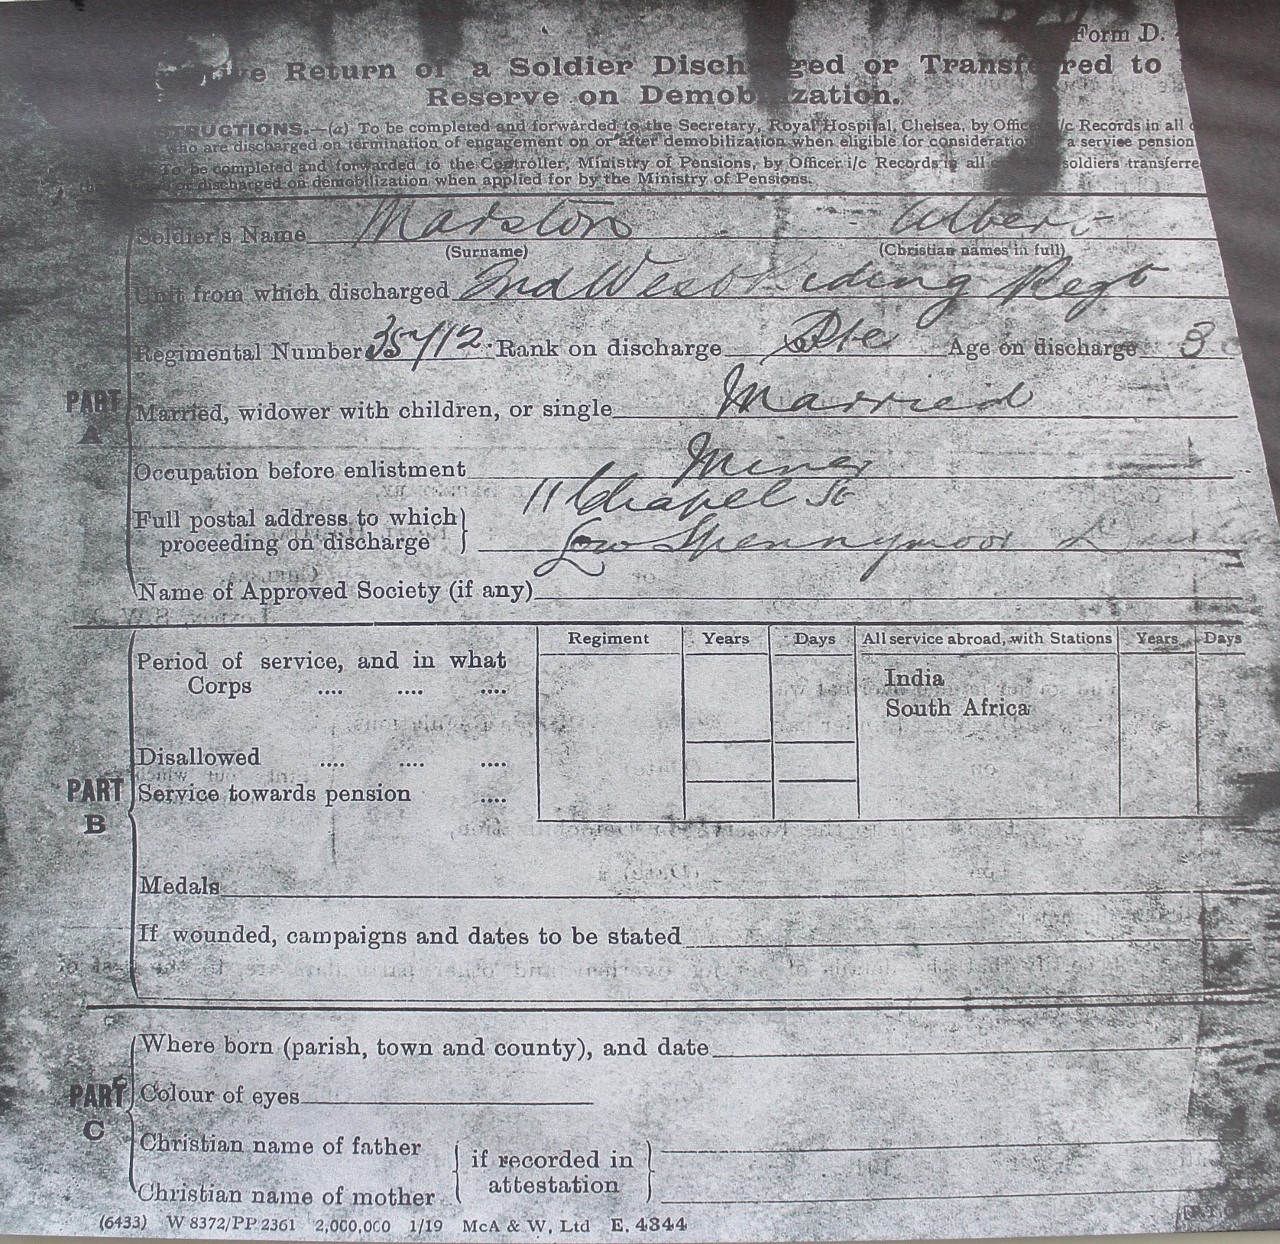 Form D.
Return of a Soldier Discharged or Transferred to
Reserve on Demobilization.
STRUCTIONS.—(a) To be completed and forwarded to the Secretary, Royal Hospital, Chelsea, by Offic i/c Records in all c
who are discharged on termination of engagement on or after demobilization when eligible for consideration a service pension
To be completed and forwarded to the Controller, Ministry of Pensions, by Officer i/c Records in all soldiers transferre
or discharged on demobilization when applied for by the Ministry of Pensions.
Soldier's Name Marston Albert
(Surname) (Christian names in full)
Unit from which discharged 2nd West Riding Regt
Regimental Number 35712 Rank on discharge Pte Age on discharge 3
PART A
Married, widower with children, or single Married
Occupation before enlistment Miner
Full postal address to which 11 Chapel St
proceeding on discharge Low Spennymoor
Name of Approved Society (if any)
Regiment Years Days All service abroad, with Stations Years Days
Period of service, and in what India
Corps .... .... .... South Africa
Disallowed .... .... ....
PART B
Service towards pension ....
Medals
If wounded, campaigns and dates to be stated
Where born (parish, town and county), and date
PART C
Colour of eyes
Christian name of father if recorded in
Christian name of mother attestation
(6433) W 8372/PP 2361 2,000,000 1/19 McA & W, Ltd E. 4344